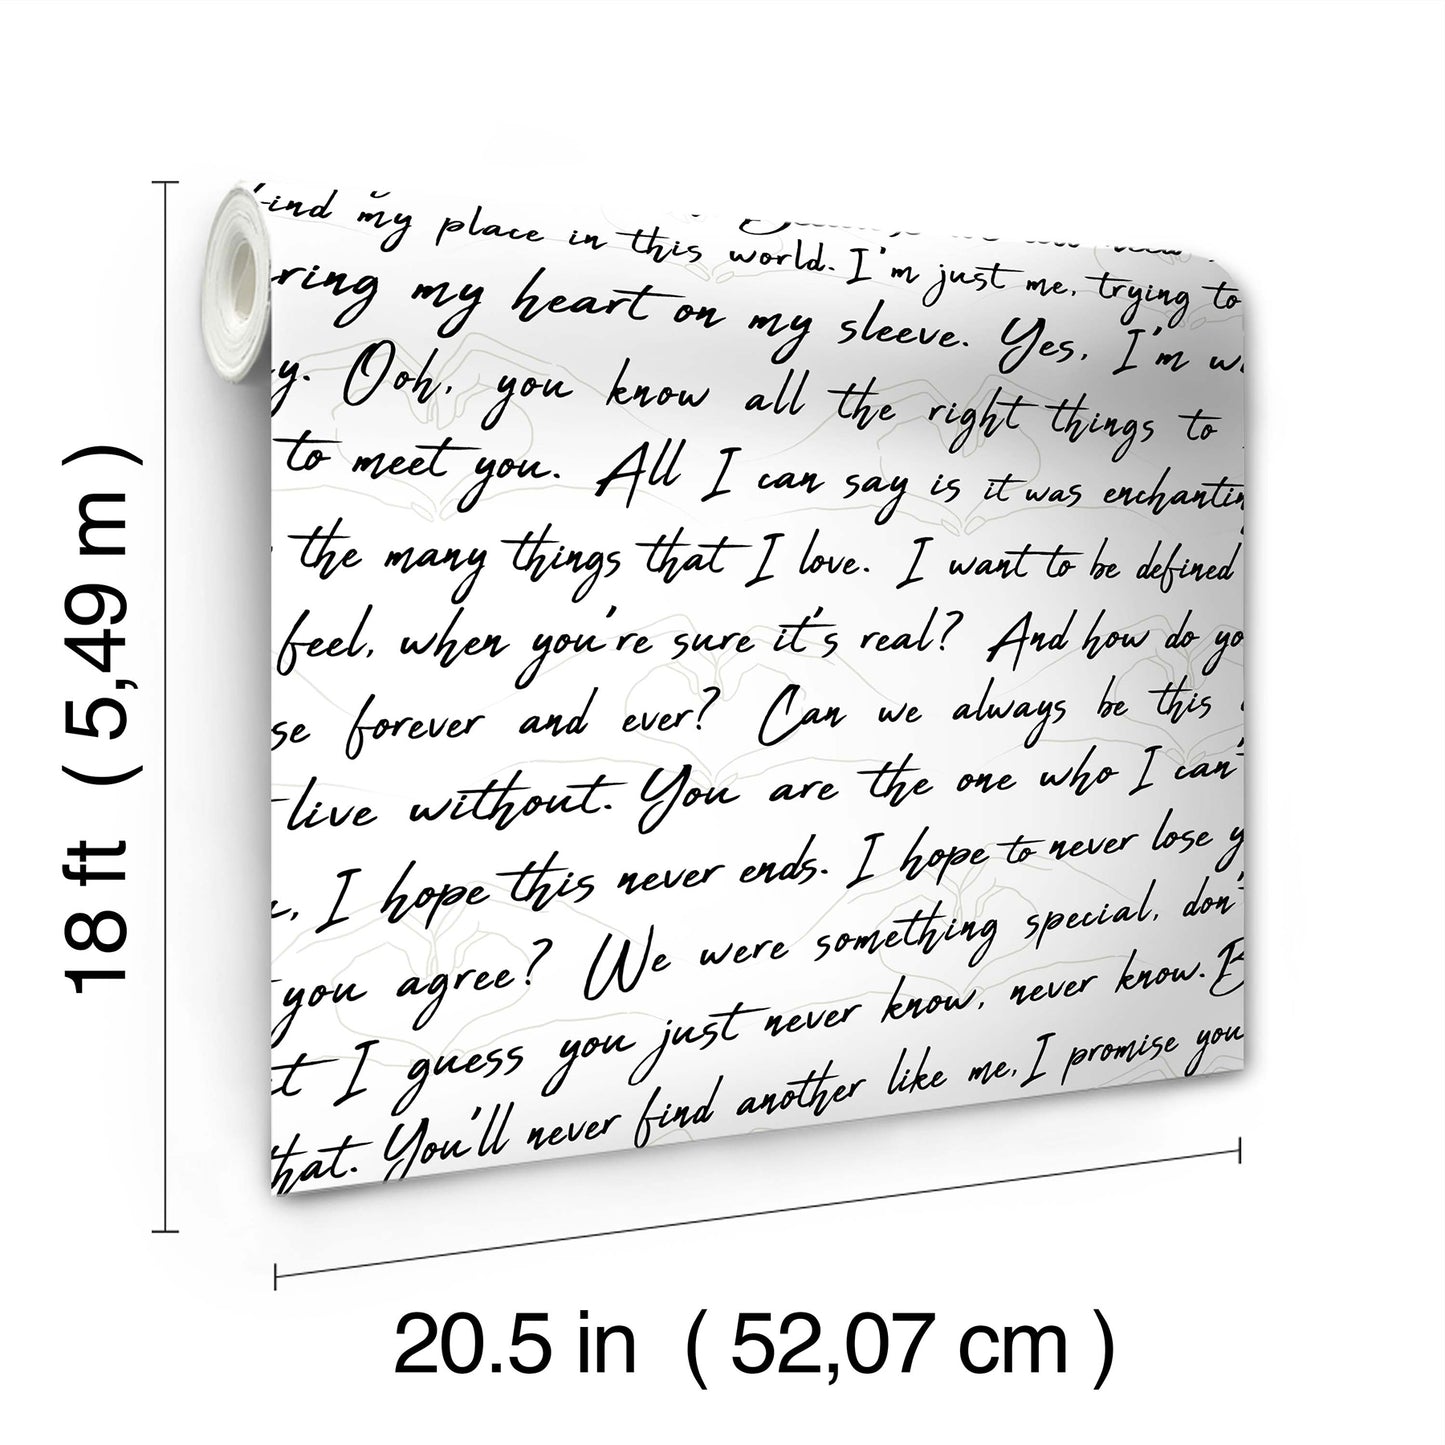 find my place in this world. I'm just me, trying to
ring my heart on my sleeve. Yes, I'm w
y. Ooh, you know all the right things to
to meet you. All I can say is it was enchantin
the many things that I love. I want to be defined
feel, when you're sure it's real? And how do yo
se forever and ever? Can we always be this
live without. You are the one who I can'
, I hope this never ends. I hope to never lose y
you agree? We were something special, don'
t I guess you just never know, never know. B
hat. You'll never find another like me, I promise you
18 ft ( 5,49 m )
20.5 in ( 52,07 cm )